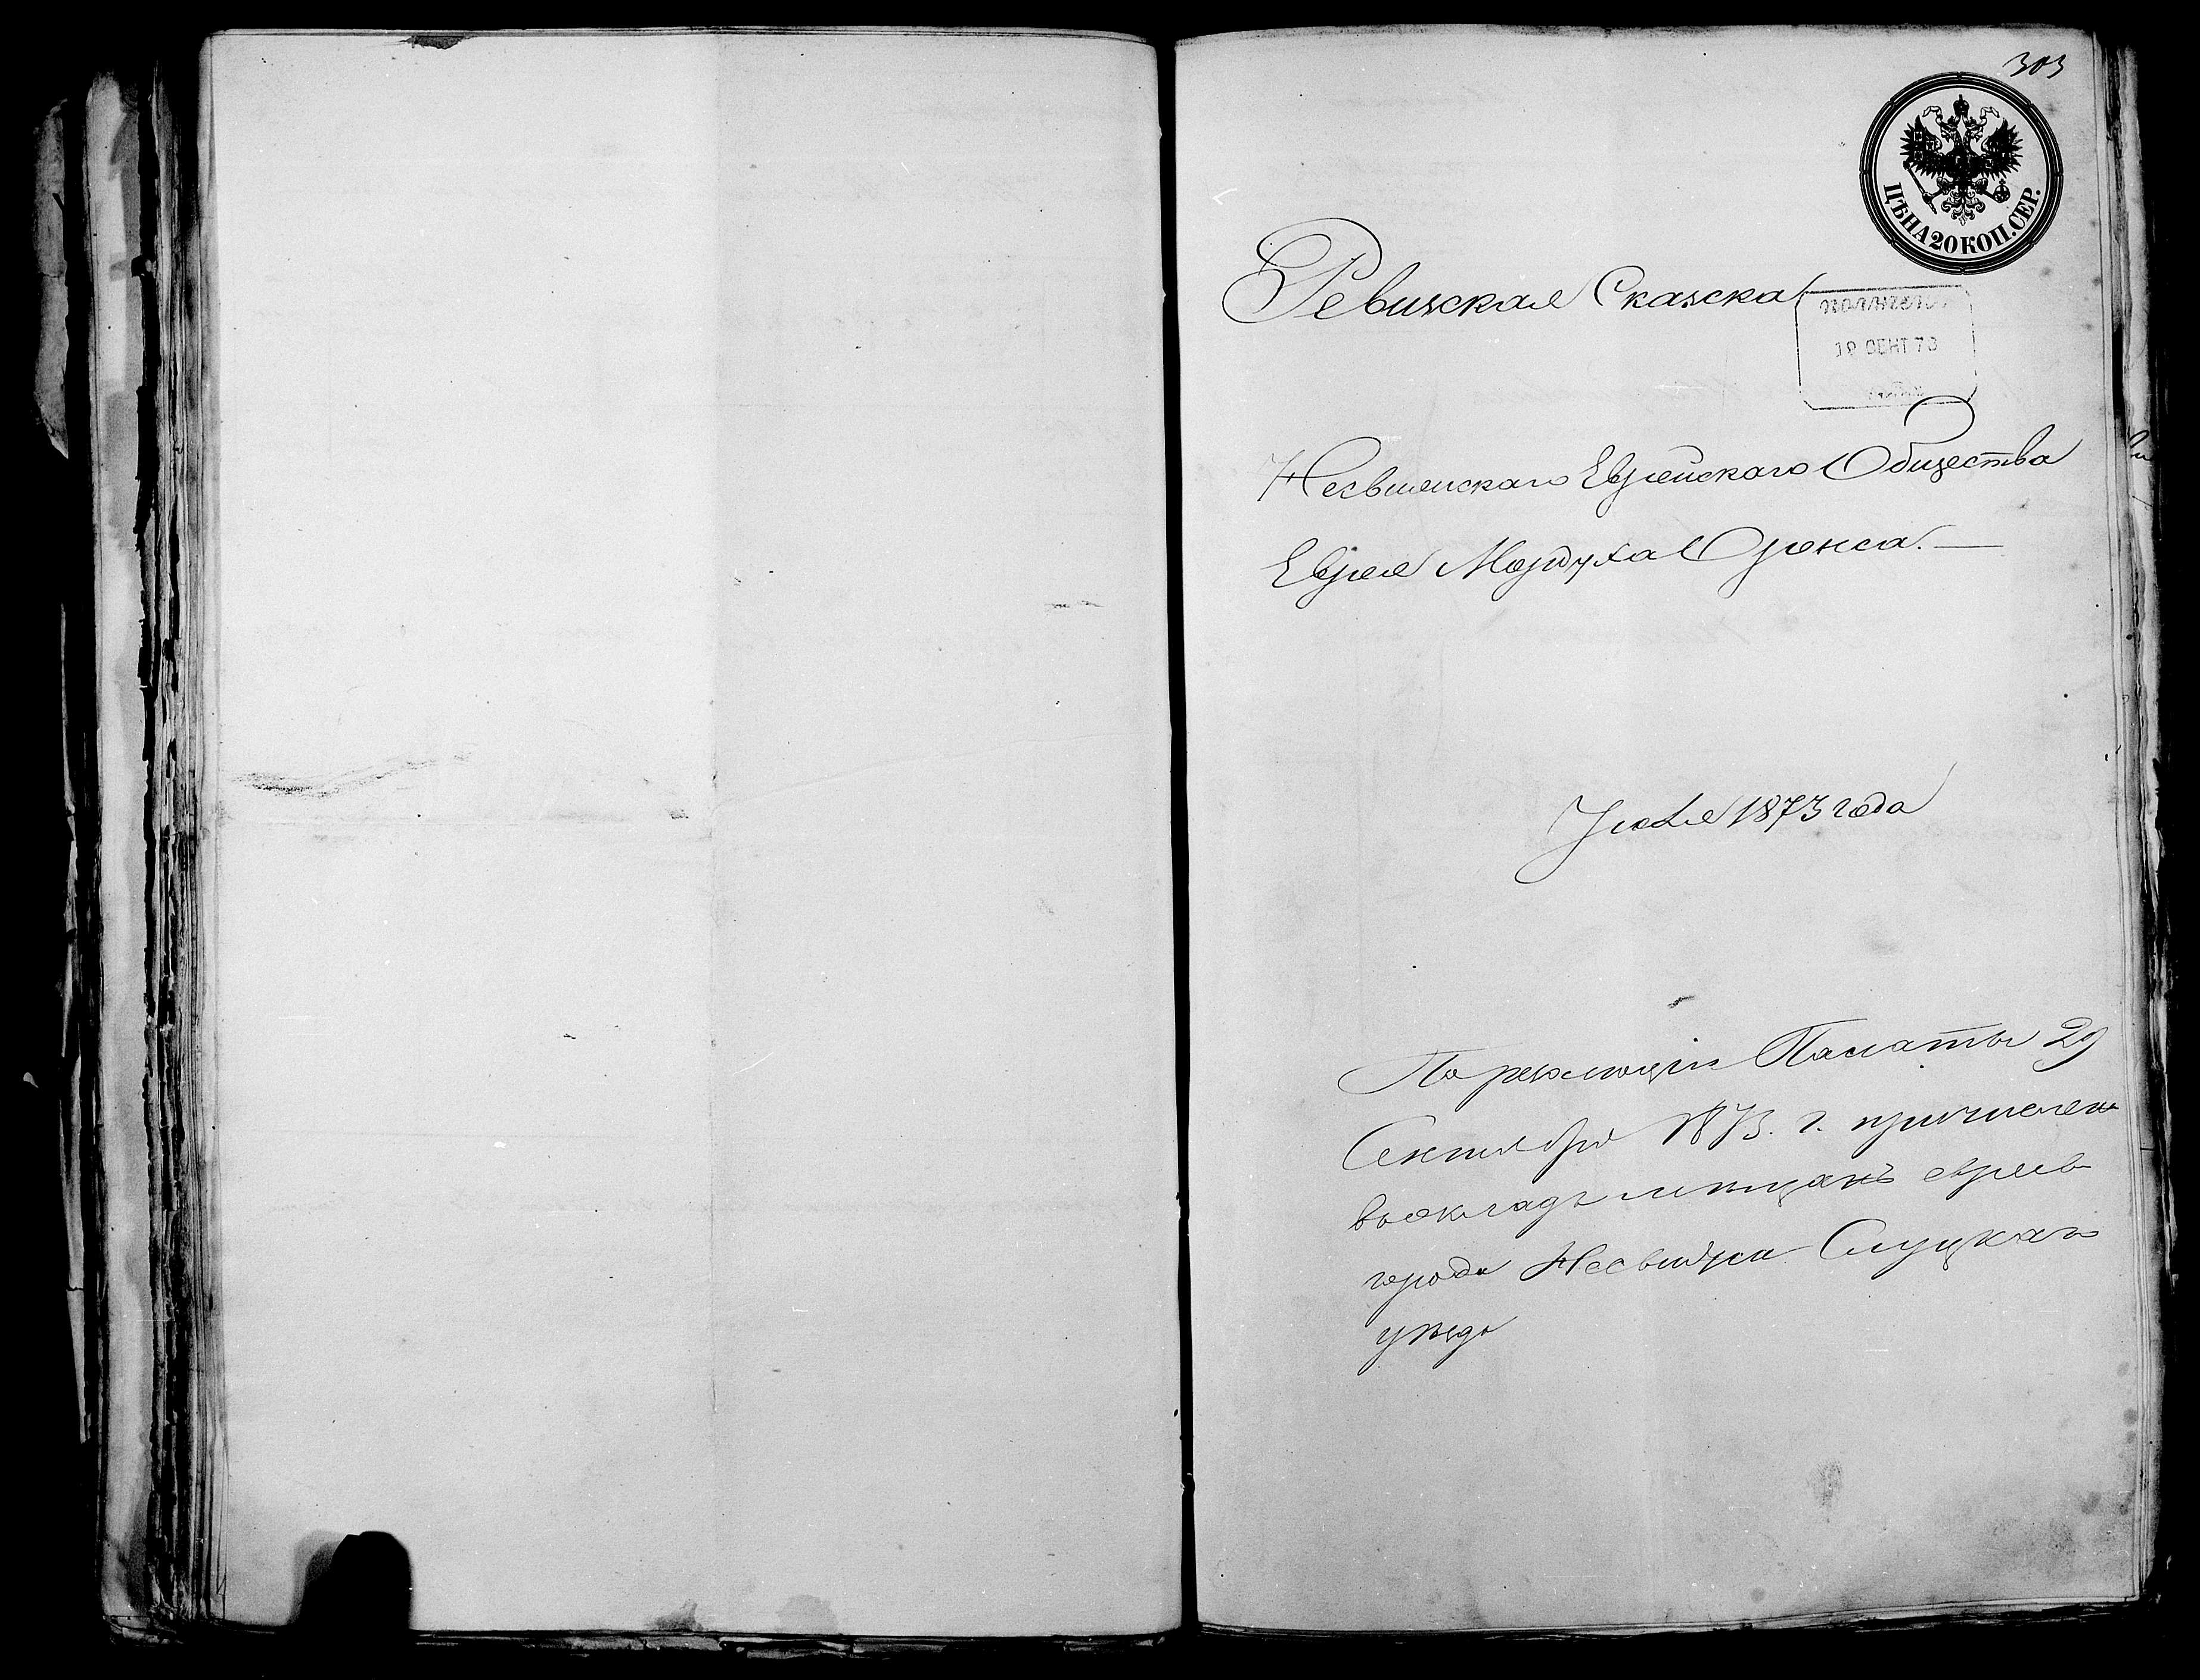 303
ЦѢНА 20 КОП. СЕР.
Ревизская Сказка
ПОЛУЧЕНО
19 СЕНТ 73
Несвижскаго Еврейскаго Общества
Еврея Мордуха
Іюля 1873 года
По резолюціи Палаты 29
Сентября 1873. г. причислен
въ окладъ мѣщанъ евреевъ
города Несвижа Слуцкаго
уѣзда